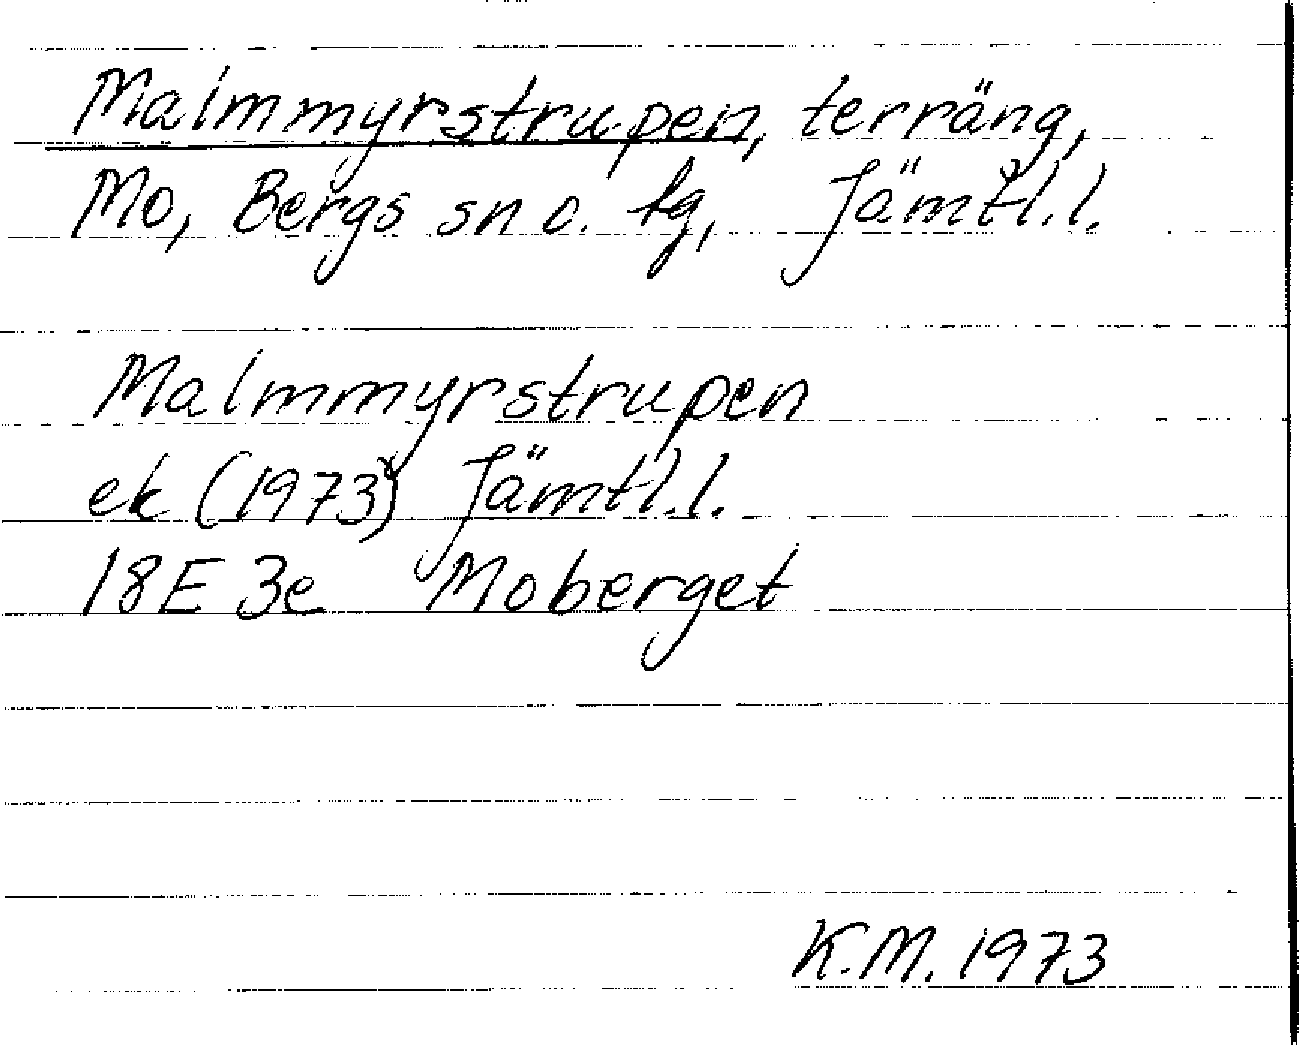 Malmmyrstrupen, terräng,
Mo, Bergs sn o. tg, Jämtl.l.
Malmmyrstrupen
ek (1973) Jämtl.l.
18E 3e Moberget
K.M. 1973